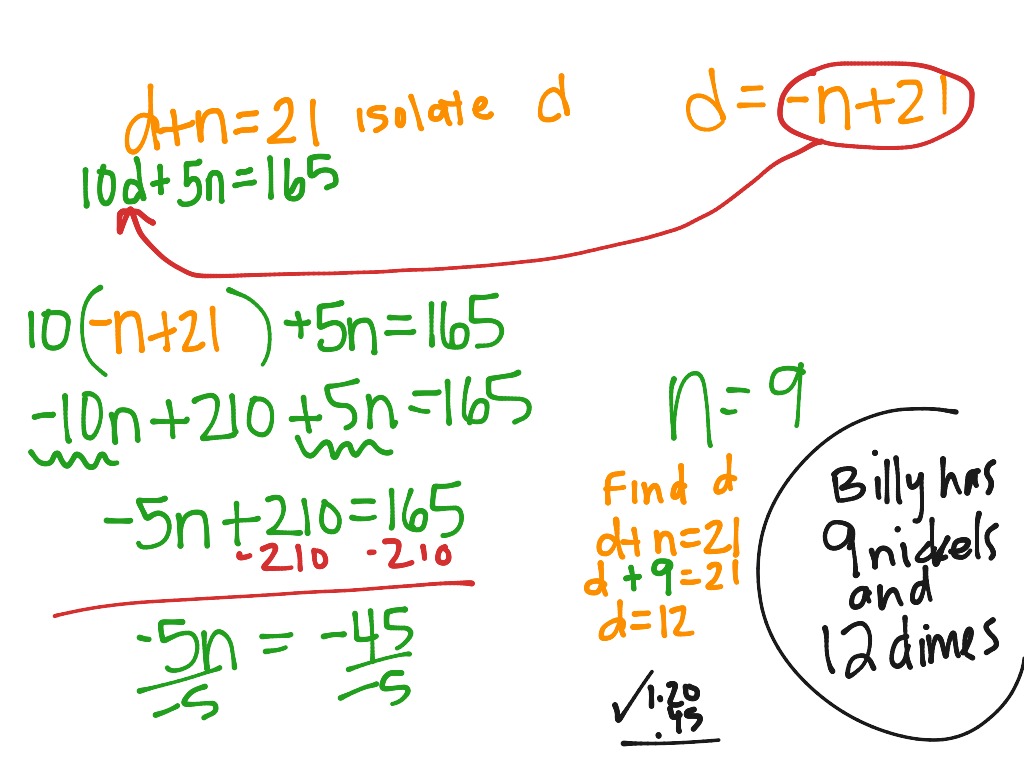 d+n=21 isolate d
d=-n+21
10d+5n=165
10(-n+21)+5n=165
-10n+210+5n=165
-5n+210=165
-210 -210
-5n = -45
-5 -5
n=9
Find d
d+n=21
d+9=21
d=12
✓1.20
.45
Billy has
9 nickels
and
12 dimes